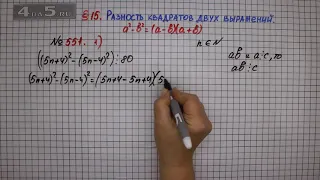 4an5.ru
§ 15. Разность квадратов двух выражений.
a²-b²=(a-b)(a+b)
№ 551. 1)
n ∈ N
((5n+4)²-(5n-4)²):80
ab = a:c, то
ab : c
(5n+4)²-(5n-4)²=(5n+4-5n+4)(5